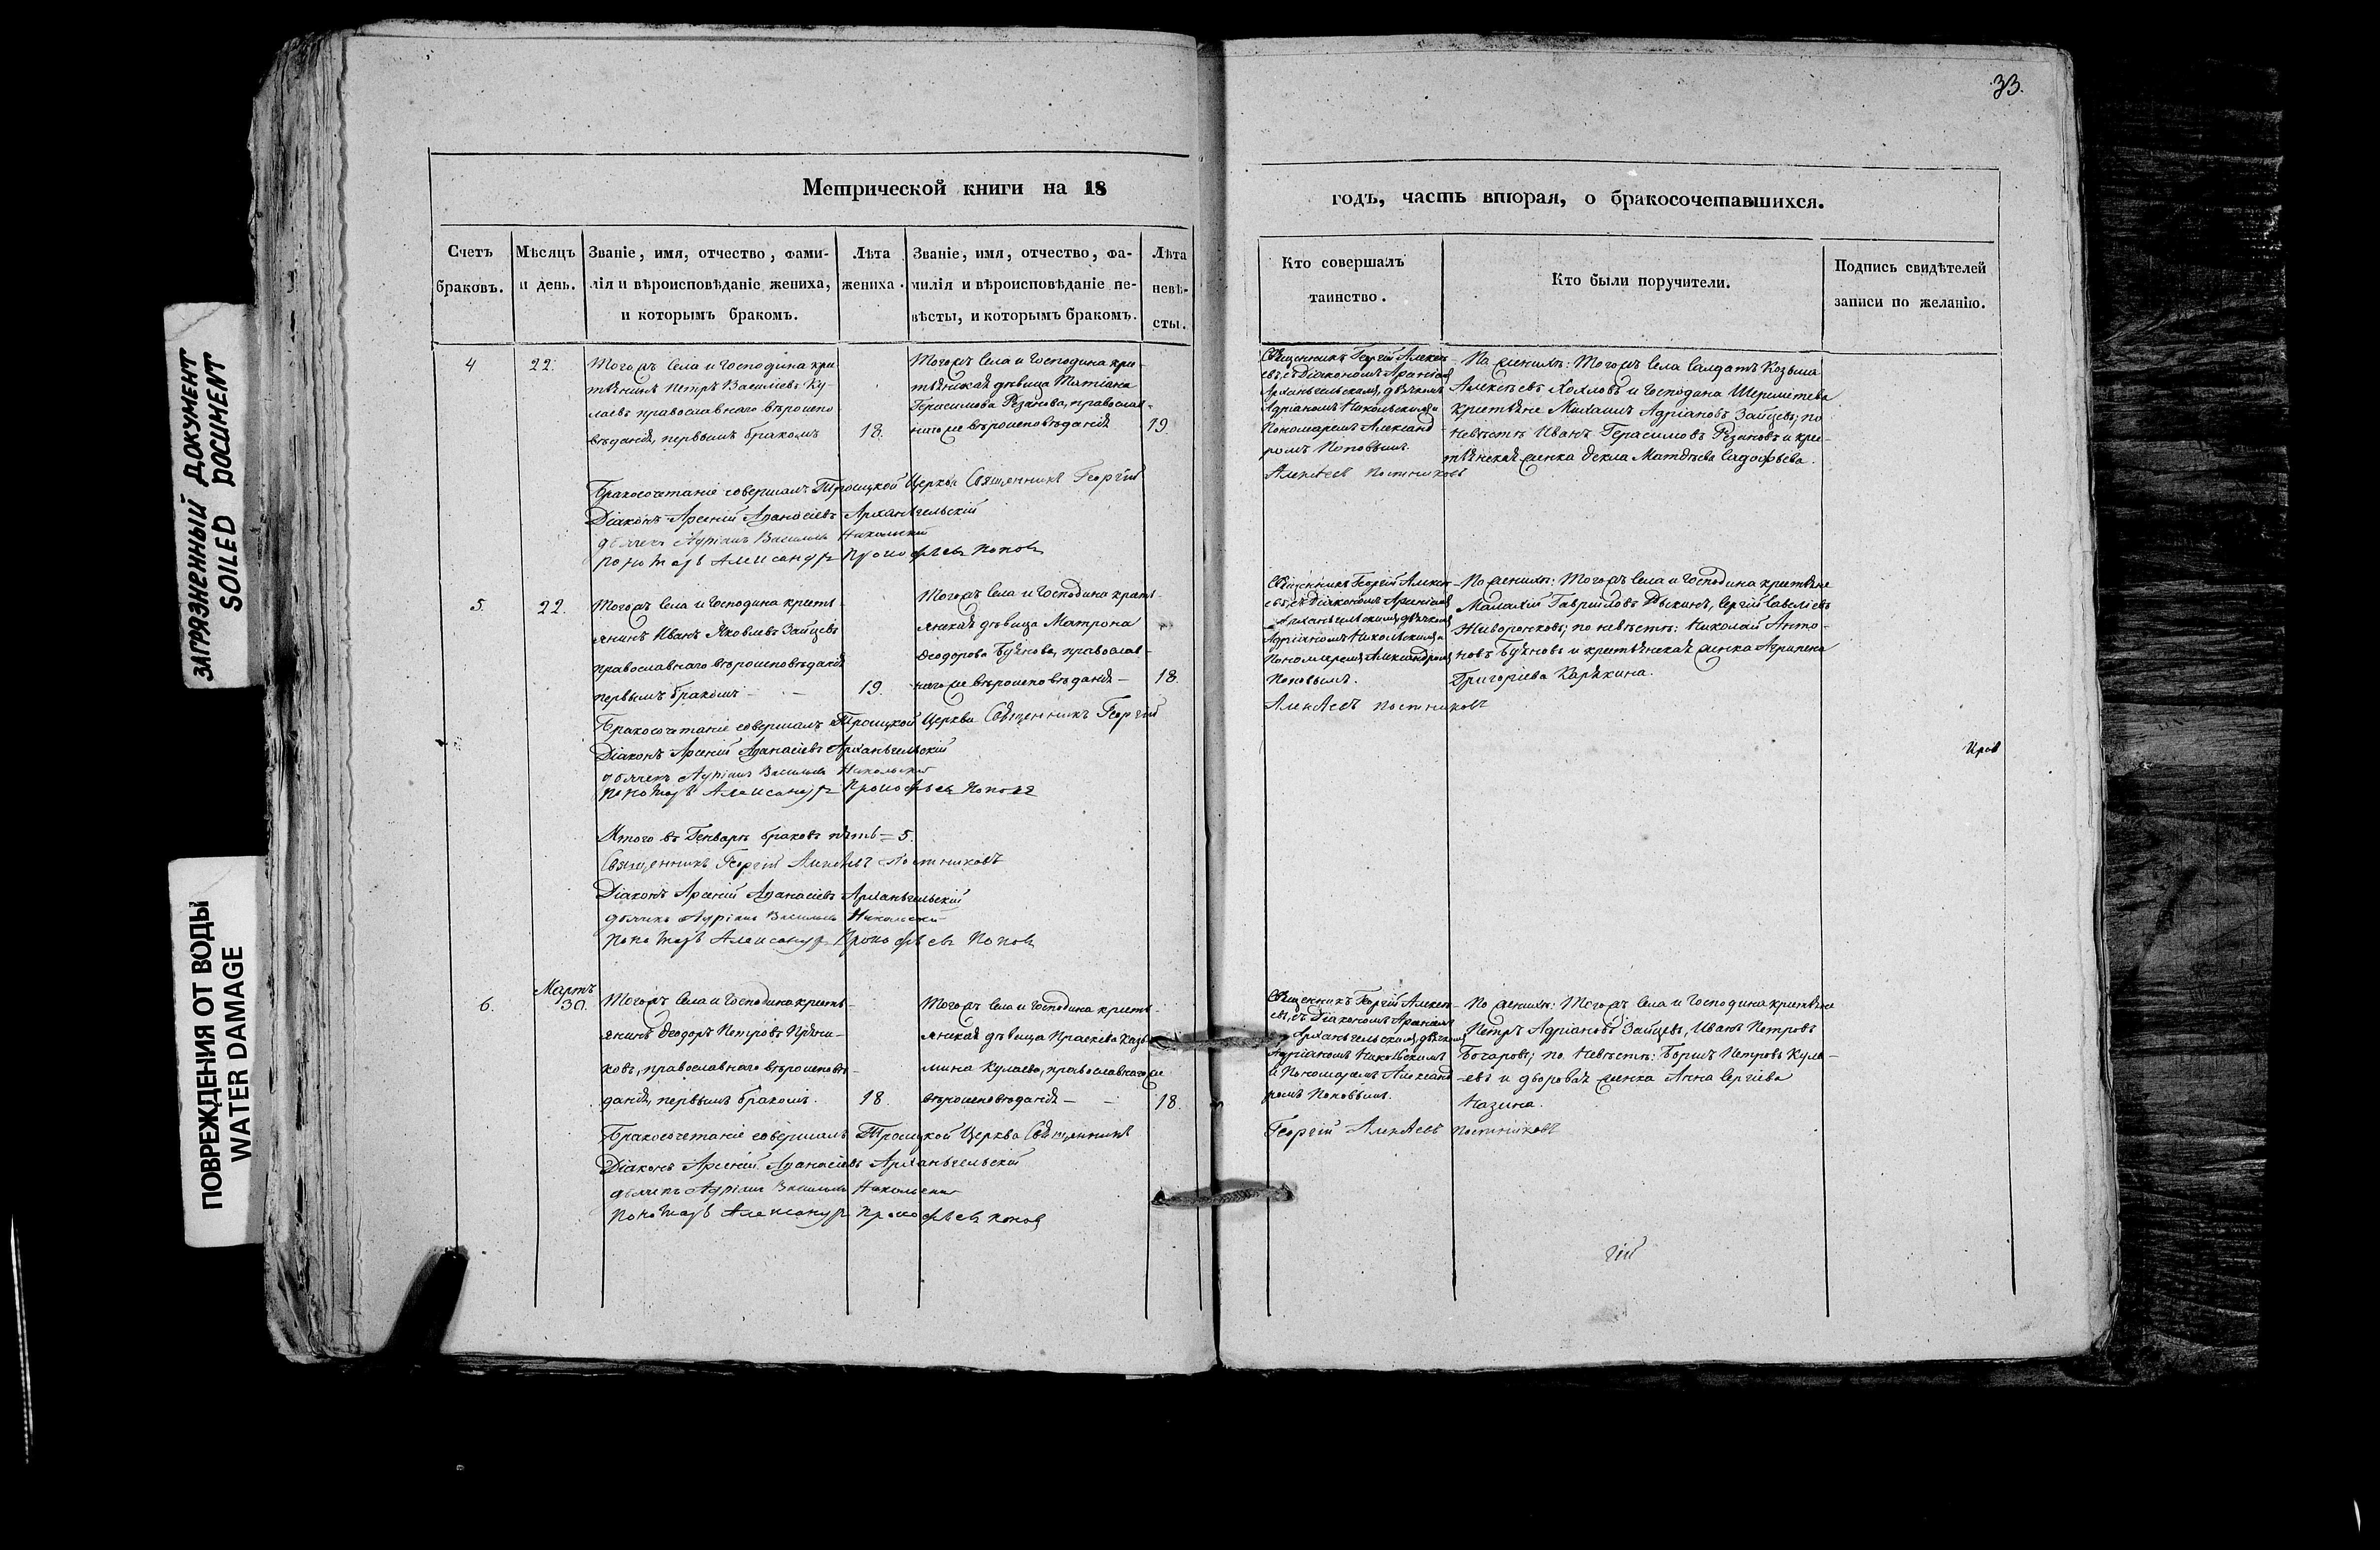 33.
Метрической книги на 18
годъ, часть вторая, о бракосочетавшихся.
Счетъ
браковъ.
Мѣсяцъ
и день.
Званіе, имя, отчество, фами-
лія и вѣроисповѣданіе жениха,
и которымъ бракомъ.
Лѣта
жениха.
Званіе, имя, отчество, фа-
милія и вѣроисповѣданіе не-
вѣсты, и которымъ бракомъ.
Лѣта
невѣ-
сты.
Кто совершалъ
таинство.
Кто были поручители.
Подпись свидѣтелей
записи по желанію.
4
22.
Тогожъ Села и Господина кре
стьянинъ Петръ Василіевъ Ку-
лаевъ православнаго вѣроиспо
вѣданія, первымъ бракомъ
18.
Тогожъ Села и Господина кре-
стьянская дѣвица Татіана
Герасимова Рѣзанова, православ-
наго же вѣроисповѣданія
19.
Священникъ Георгій Алексѣ-
евъ, съ Діакономъ Арсеніемъ
Архангельскимъ, дьячкомъ
Адріаномъ Никольскимъ и
Пономаремъ Александ-
ромъ Поповымъ.
Алексѣевъ Постниковъ
По женихѣ: Тогожъ Села Салдатъ Козьма
Алексѣевъ Хохловъ и Господина Шереметева
крестьяне Михаилъ Адріановъ Зайцевъ; по
невѣстѣ Иванъ Герасимовъ Рѣзановъ и крес-
тьянская женка Ѳекла Матвѣева Садофьева.
Бракосочетаніе совершалъ Троицкой Церкви Священникъ Георгій
Діаконъ Арсеній Аѳанасіевъ Архангельскій
дьячекъ Адріанъ Васильевъ Никольский
пономарь Александръ Прокофьевъ Поповъ
5.
22.
Тогожъ Села и Господина кресть-
янинъ Иванъ Яковлевъ Зайцевъ
православнаго вѣроисповѣданія
первымъ бракомъ - -
19.
Тогожъ Села и Господина кресть-
янская дѣвица Матрона
Ѳеодорова Буянова, православ-
наго же вѣроисповѣданія -
18.
Священникъ Георгій Алексѣ-
евъ, съ Діакономъ Арсеніемъ
Архангельскимъ, дьячкомъ
Адріаномъ Никольскимъ и
Пономаремъ Александромъ
Поповымъ.
Алексѣевъ Постниковъ
По женихѣ: Тогожъ Села и Господина крестьяне
Малахій Гавриловъ Дыскинъ, Сергій Савеліевъ
Живоронковъ; по невѣстѣ: Николай Анто-
новъ Буяновъ и крестьянская женка Агрипена
Григоріева Карякина.
Бракосочетаніе совершалъ Троицкой Церкви Священникъ Георгій
Діаконъ Арсеній Аѳанасіевъ Архангельскій
дьячекъ Адріанъ Васильевъ Никольский
пономарь Александръ Прокофьевъ Поповъ
Итого въ Генварѣ браковъ пять = 5.
Священникъ Георгій Алексѣевъ Постниковъ
Діаконъ Арсеній Аѳанасіевъ Архангельскій
дьячекъ Адріанъ Васильевъ Никольский
пономарь Александръ Прокофьевъ Поповъ
6.
Мартъ
30.
Тогожъ Села и Господина кресть-
янинъ Ѳеодоръ Петровъ Пряни-
ковъ, православнаго вѣроисповѣ-
данія, первымъ бракомъ.
18.
Тогожъ Села и Господина кресть-
янская дѣвица Праскева Казь-
мина Кулаева, православнаго же
вѣроисповѣданія - -
18.
Священникъ Георгій Алексѣ-
евъ, съ Діакономъ Арсеніемъ
Архангельскимъ, дьячкомъ
Адріаномъ Никольскимъ
и Пономаремъ Александ-
ромъ Поповымъ.
Георгій Алексѣевъ Постниковъ
По женихѣ: Тогожъ Села и Господина крестьяне
Петръ Адріановъ Зайцевъ, Иванъ Петровъ
Бочаровъ; по невѣстѣ: Борисъ Петровъ Кула-
евъ и дворовая женка Анна Сергіева
Назина.
Бракосочетаніе совершалъ Троицкой Церкви Священникъ
Діаконъ Арсеній Аѳанасіевъ Архангельскій
дьячекъ Адріанъ Васильевъ Никольский
пономарь Александръ Прокофьевъ Поповъ
гій
ЗАГРЯЗНЕННЫЙ ДОКУМЕНТ
SOILED DOCUMENT
ПОВРЕЖДЕНИЯ ОТ ВОДЫ
WATER DAMAGE